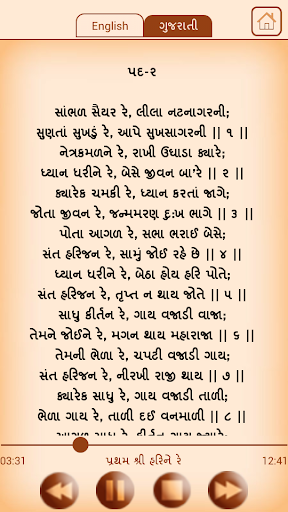 English
ગુજરાતી
પદ-૨
સાંભળ સૈયર રે, લીલા નટનાગરની;
સુણતાં સુખડું રે, આપે સુખસાગરની || ૧ ||
નેત્રકમળને રે, રાખી ઉઘાડા ક્યારે;
ધ્યાન ધરીને રે, બેસે જીવન બા'રે || ૨ ||
ક્યારેક ચમકી રે, ધ્યાન કરતાં જાગે;
જોતા જીવન રે, જન્મમરણ દુઃખ ભાગે || ૩ ||
પોતા આગળ રે, સભા ભરાઈ બેસે;
સંત હરિજન રે, સામું જોઈ રહે છે || ૪ ||
ધ્યાન ધરીને રે, બેઠા હોય હરિ પોતે;
સંત હરિજન રે, તૃપ્ત ન થાય જોતે || ૫ ||
સાધુ કીર્તન રે, ગાય વજાડી વાજા;
તેમને જોઈને રે, મગન થાય મહારાજા || ૬ ||
તેમની ભેળા રે, ચપટી વજાડી ગાય;
સંત હરિજન રે, નીરખી રાજી થાય || ૭ ||
ક્યારેક સાધુ રે, ગાય વજાડી તાળી;
ભેળા ગાય રે, તાળી દઈ વનમાળી || ૮ ||
આગળ સાધુ રે, કીર્તન ગાય ક્યારે;
03:31
પ્રથમ શ્રી હરિને રે
12:41